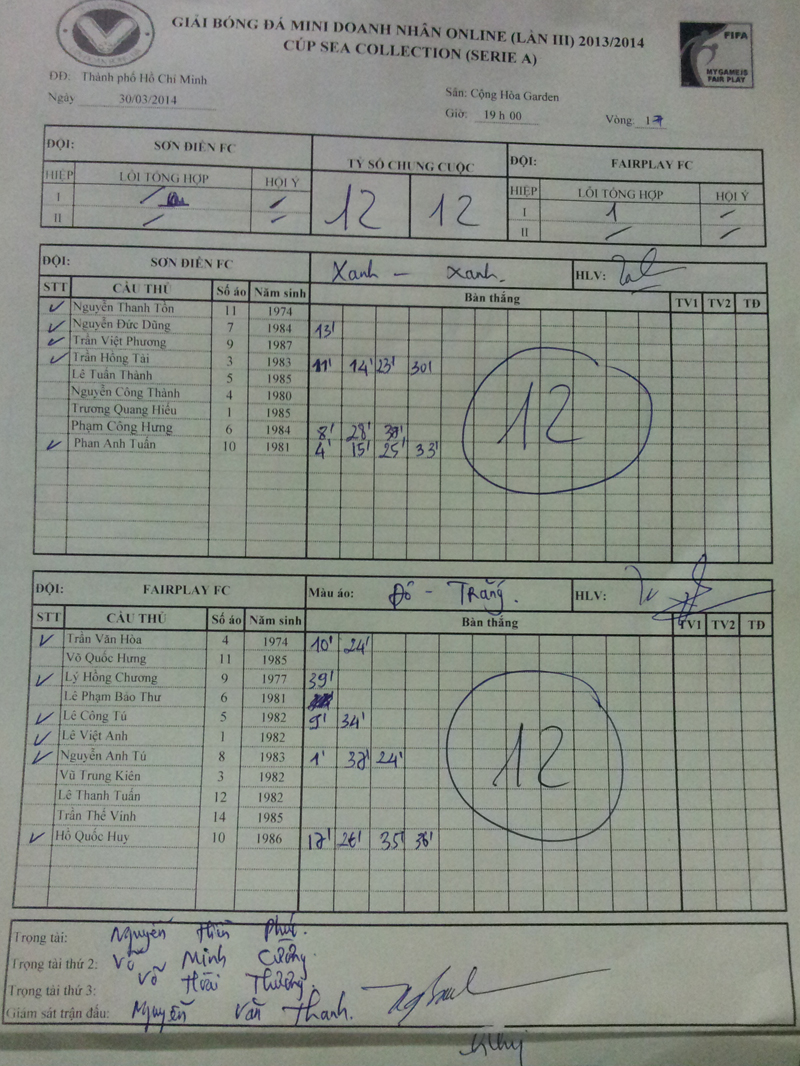 GIẢI BÓNG ĐÁ MINI DOANH NHÂN ONLINE (LẦN III) 2013/2014
CÚP SEA COLLECTION (SERIE A)
FIFA
MY GAME IS FAIR PLAY
ĐĐ: Thành phố Hồ Chí Minh
Sân: Cộng Hòa Garden
Ngày 30/03/2014
Giờ: 19 h 00
Vòng: 17
ĐỘI: SƠN ĐIỀN FC TỶ SỐ CHUNG CUỘC ĐỘI: FAIRPLAY FC
HIỆP LỖI TỔNG HỢP HỘI Ý 12 12 HIỆP LỖI TỔNG HỢP HỘI Ý
I I 1
II II
ĐỘI: SƠN ĐIỀN FC Xanh - Xanh. HLV:
STT CẦU THỦ Số áo Năm sinh Bàn thắng TV1 TV2 TĐ
Nguyễn Thanh Tồn 11 1974
Nguyễn Đức Dũng 7 1984 13'
Trần Việt Phương 9 1987
Trần Hồng Tài 3 1983 11' 14' 23' 30'
Lê Tuấn Thành 5 1985
Nguyễn Công Thành 4 1980
Trương Quang Hiếu 1 1985
Phạm Công Hưng 6 1984 8' 28'
Phan Anh Tuấn 10 1981 4' 15' 25' 33'
12
ĐỘI: FAIRPLAY FC Màu áo: Đỏ - Trắng. HLV:
STT CẦU THỦ Số áo Năm sinh Bàn thắng TV1 TV2 TĐ
Trần Văn Hòa 4 1974 10' 24'
Võ Quốc Hưng 11 1985
Lý Hồng Chương 9 1977 39'
Lê Phạm Bảo Thư 6 1981
Lê Công Tú 5 1982 9' 34'
Lê Việt Anh 1 1982
Nguyễn Anh Tú 8 1983 1' 37' 24'
Vũ Trung Kiên 3 1982
Lê Thanh Tuấn 12 1982
Trần Thế Vinh 14 1985
Hồ Quốc Huy 10 1986 17' 26' 35' 36'
12
Trọng tài: Nguyễn Hiền Phúc.
Trọng tài thứ 2: Võ Minh Cường.
Trọng tài thứ 3: Võ Hoài Thương.
Giám sát trận đấu: Nguyễn Văn Thanh.